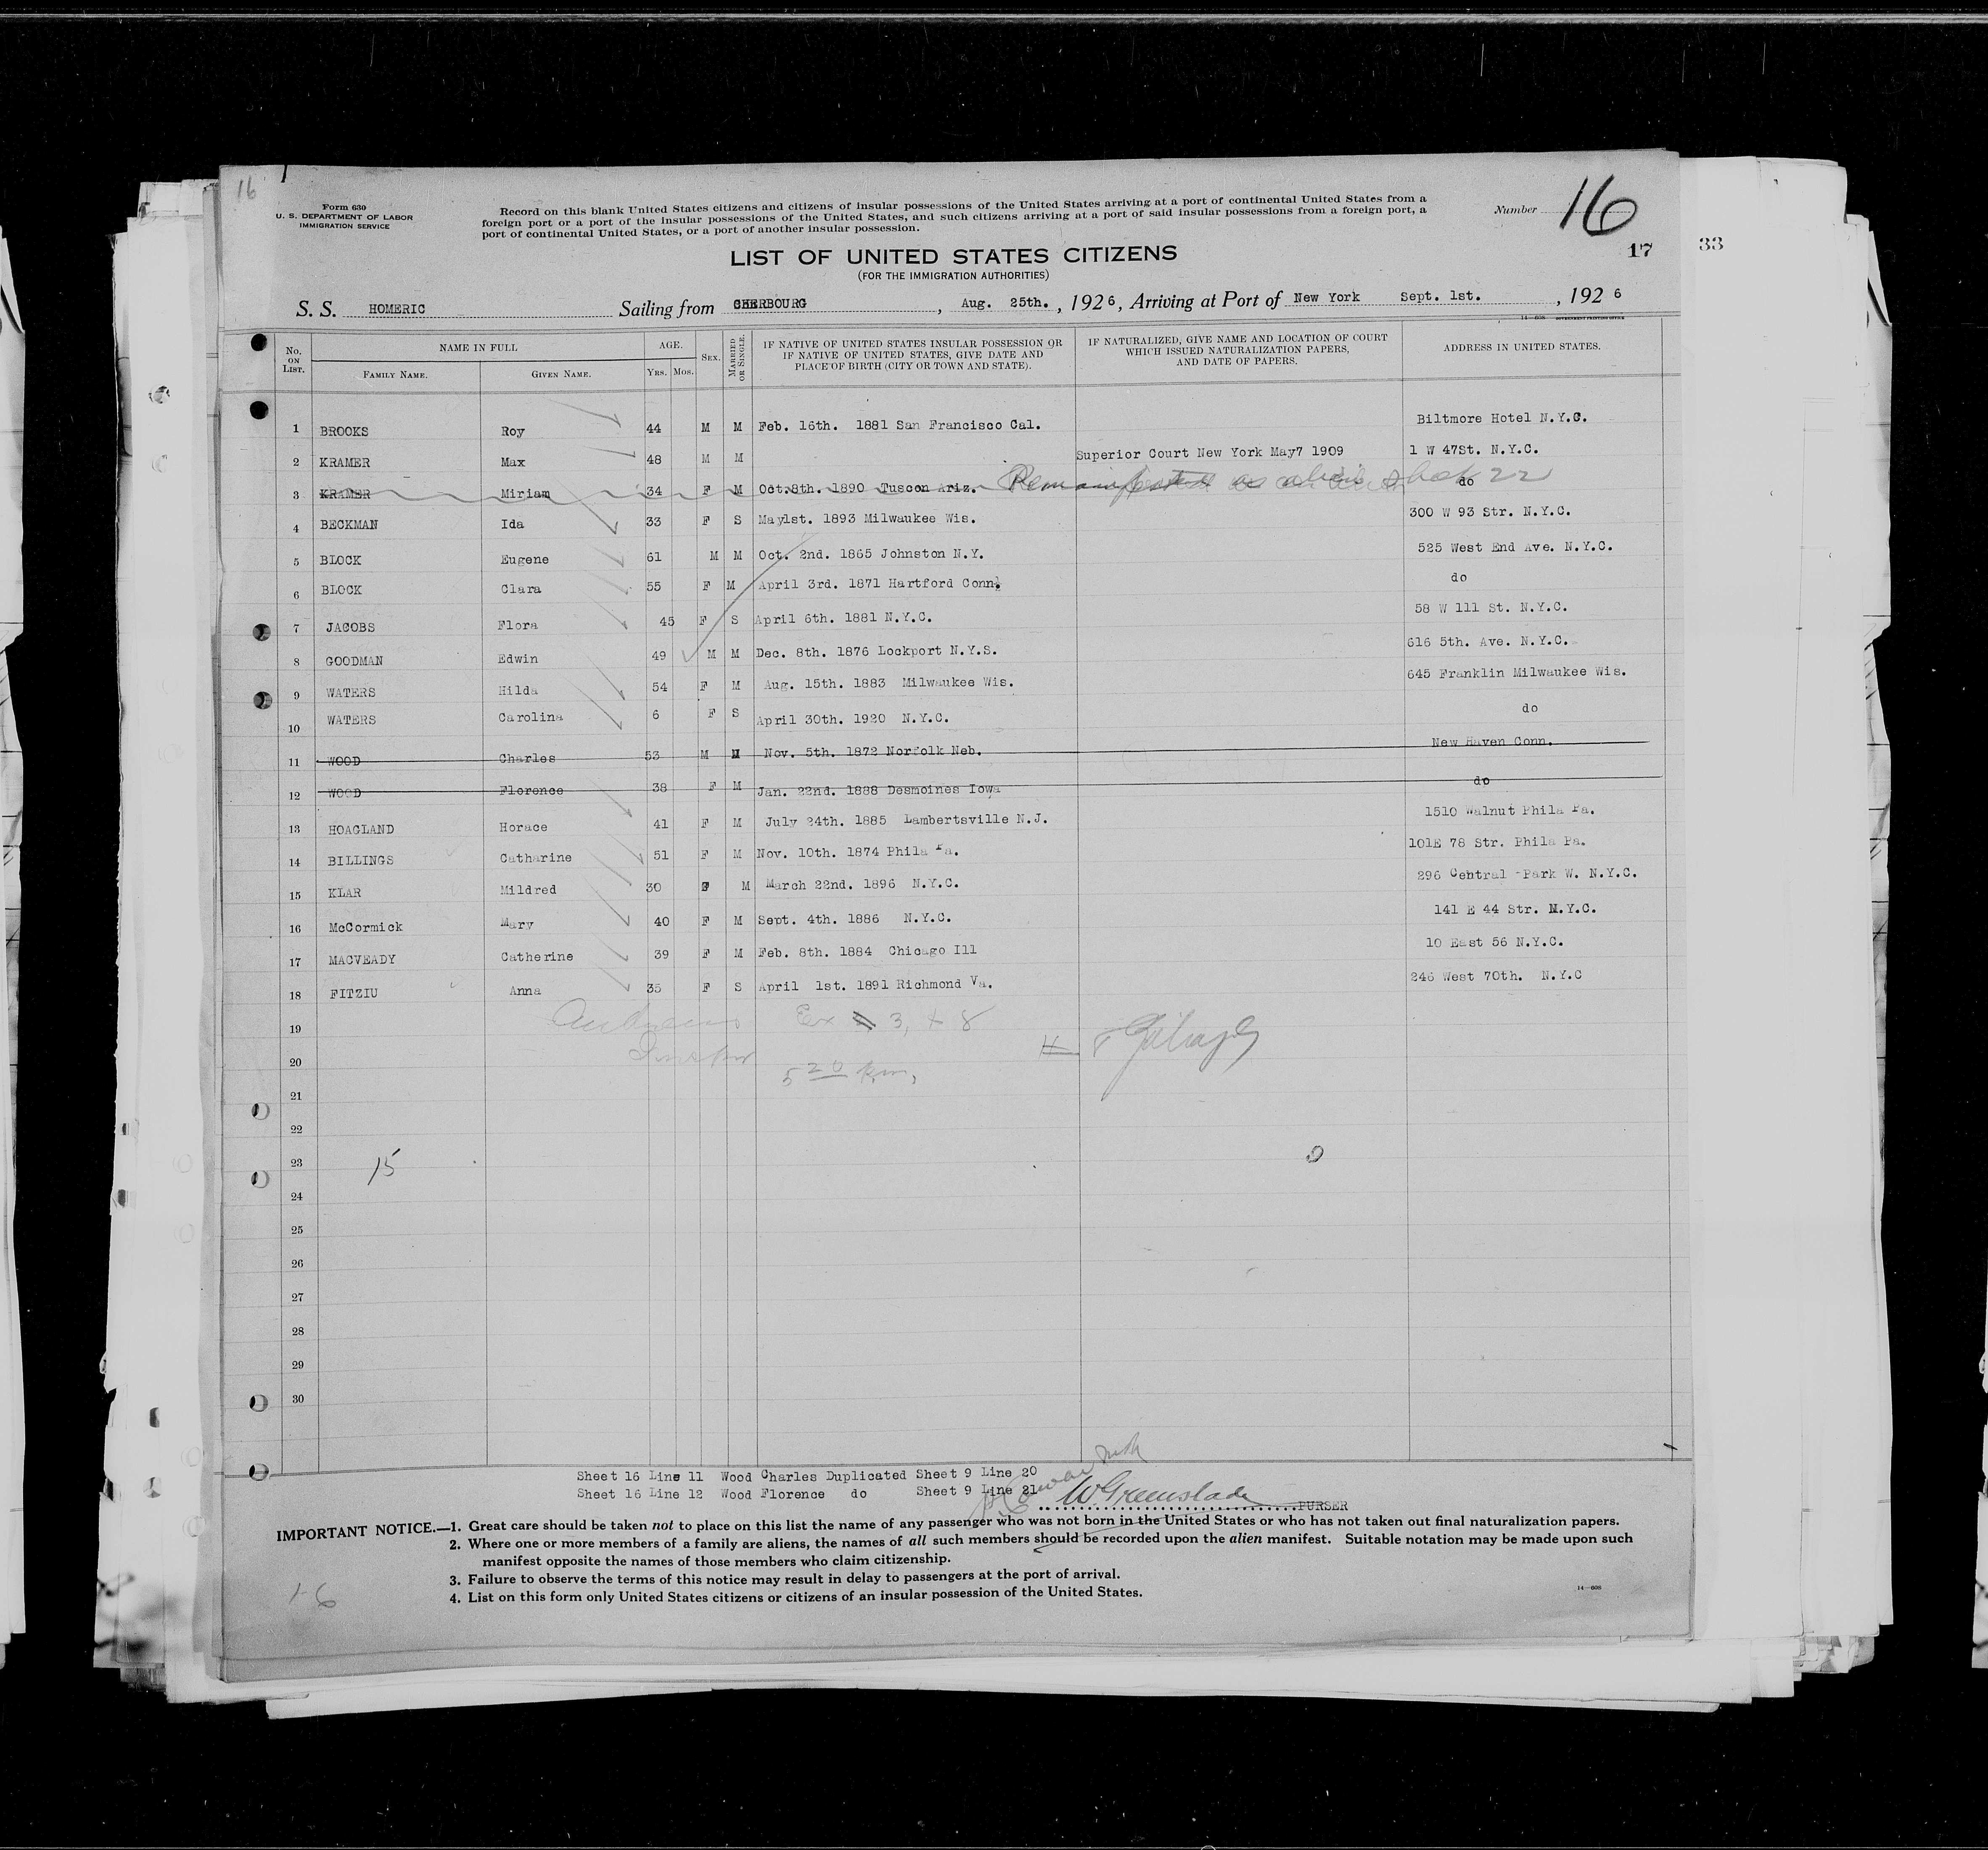 16
Form 630
U. S. DEPARTMENT OF LABOR
IMMIGRATION SERVICE
Record on this blank United States citizens and citizens of insular possessions of the United States arriving at a port of continental United States from a
foreign port or a port of the insular possessions of the United States, and such citizens arriving at a port of said insular possessions from a foreign port, a
port of continental United States, or a port of another insular possession.
Number 16
17 33
LIST OF UNITED STATES CITIZENS
(FOR THE IMMIGRATION AUTHORITIES)
S. S. HOMERIC Sailing from CHERBOURG, Aug. 25th., 1926, Arriving at Port of New York Sept. 1st., 1926
14—608 GOVERNMENT PRINTING OFFICE
No. ON LIST. NAME IN FULL FAMILY NAME. GIVEN NAME. AGE. YRS. MOS. SEX. MARRIED OR SINGLE. IF NATIVE OF UNITED STATES INSULAR POSSESSION OR IF NATIVE OF UNITED STATES, GIVE DATE AND PLACE OF BIRTH (CITY OR TOWN AND STATE). IF NATURALIZED, GIVE NAME AND LOCATION OF COURT WHICH ISSUED NATURALIZATION PAPERS, AND DATE OF PAPERS. ADDRESS IN UNITED STATES.
1 BROOKS Roy 44 M M Feb. 16th. 1881 San Francisco Cal. Biltmore Hotel N.Y.C.
2 KRAMER Max 48 M M Superior Court New York May7 1909 1 W 47St. N.Y.C.
3 KRAMER Miriam 34 F M Oct.8th. 1890 Tuscon Ariz. Remanifested as alien sheet 22 do
4 BECKMAN Ida 33 F S May1st. 1893 Milwaukee Wis. 300 W 93 Str. N.Y.C.
5 BLOCK Eugene 61 M M Oct. 2nd. 1865 Johnston N.Y. 525 West End Ave. N.Y.C.
6 BLOCK Clara 55 F M April 3rd. 1871 Hartford Conn. do
7 JACOBS Flora 45 F S April 6th. 1881 N.Y.C. 58 W 111 St. N.Y.C.
8 GOODMAN Edwin 49 M M Dec. 8th. 1876 Lockport N.Y.S. 616 5th. Ave. N.Y.C.
9 WATERS Hilda 54 F M Aug. 15th. 1883 Milwaukee Wis. 645 Franklin Milwaukee Wis.
10 WATERS Carolina 6 F S April 30th. 1920 N.Y.C. do
11 WOOD Charles 53 M M Nov. 5th. 1872 Norfolk Neb. New Haven Conn.
12 WOOD Florence 38 F M Jan. 22nd. 1888 Desmoines Iowa do
13 HOAGLAND Horace 41 F M July 24th. 1885 Lambertsville N.J. 1510 Walnut Phila Pa.
14 BILLINGS Catharine 51 F M Nov. 10th. 1874 Phila Pa. 101E 78 Str. Phila Pa.
15 KLAR Mildred 30 F M March 22nd. 1896 N.Y.C. 296 Central Park W. N.Y.C.
16 McCormick Mary 40 F M Sept. 4th. 1886 N.Y.C. 141 E 44 Str. N.Y.C.
17 MACVEADY Catherine 39 F M Feb. 8th. 1884 Chicago Ill 10 East 56 N.Y.C.
18 FITZIU Anna 35 F S April 1st. 1891 Richmond Va. 246 West 70th. N.Y.C
19 Ex 3, + 8
20
5 20 p.m,
21
22
23 15 0
24
25
26
27
28
29
30
Sheet 16 Line 11 Wood Charles Duplicated Sheet 9 Line 20
Sheet 16 Line 12 Wood Florence do Sheet 9 Line 21
W Greenslade PURSER
IMPORTANT NOTICE.—1. Great care should be taken not to place on this list the name of any passenger who was not born in the United States or who has not taken out final naturalization papers.
2. Where one or more members of a family are aliens, the names of all such members should be recorded upon the alien manifest. Suitable notation may be made upon such
manifest opposite the names of those members who claim citizenship.
3. Failure to observe the terms of this notice may result in delay to passengers at the port of arrival.
4. List on this form only United States citizens or citizens of an insular possession of the United States.
14—608
1-6